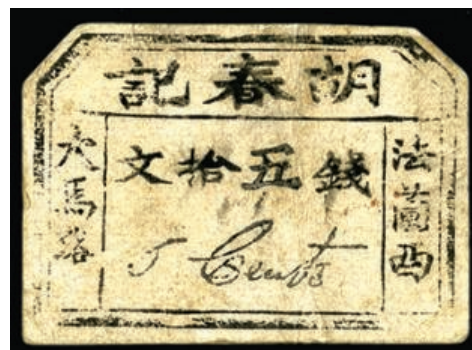 胡春記
法蘭西
錢五拾文
5 Cents
大馬路